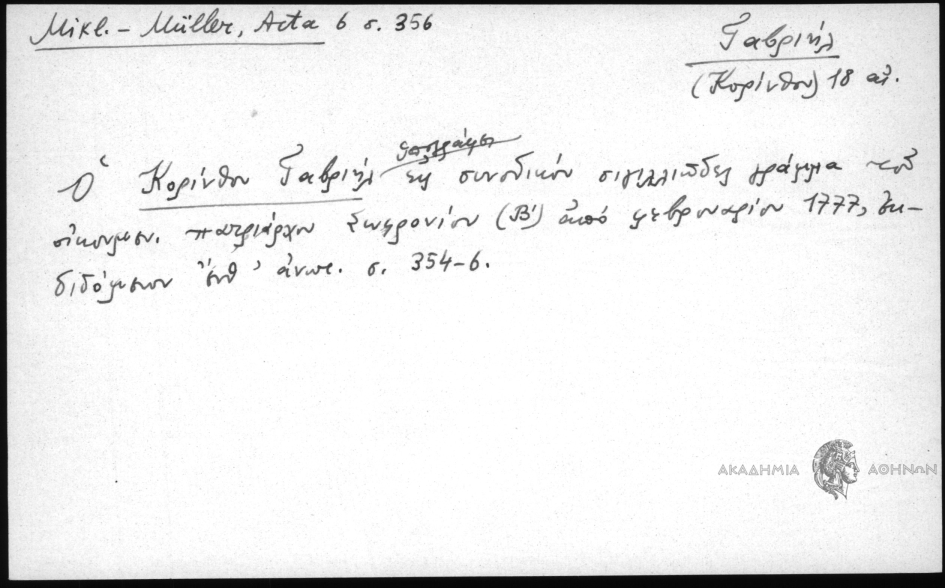 Mikl. - Müller, Acta 6 σ. 356
Γαβριήλ
(Κορίνθου) 18 αἰ.
Ὁ Κορίνθου Γαβριήλ ὑπογράφει εἰς συνοδικόν σιγιλλιῶδες γράμμα τοῦ
οἰκουμεν. πατριάρχου Σωφρονίου (Β´) ἀπό φεβρουαρίου 1777, ἐκ-
διδόμενον ἔνθ' ἀνωτ. σ. 354-6.
ΑΚΑΔΗΜΙΑ ΑΘΗΝΩΝ